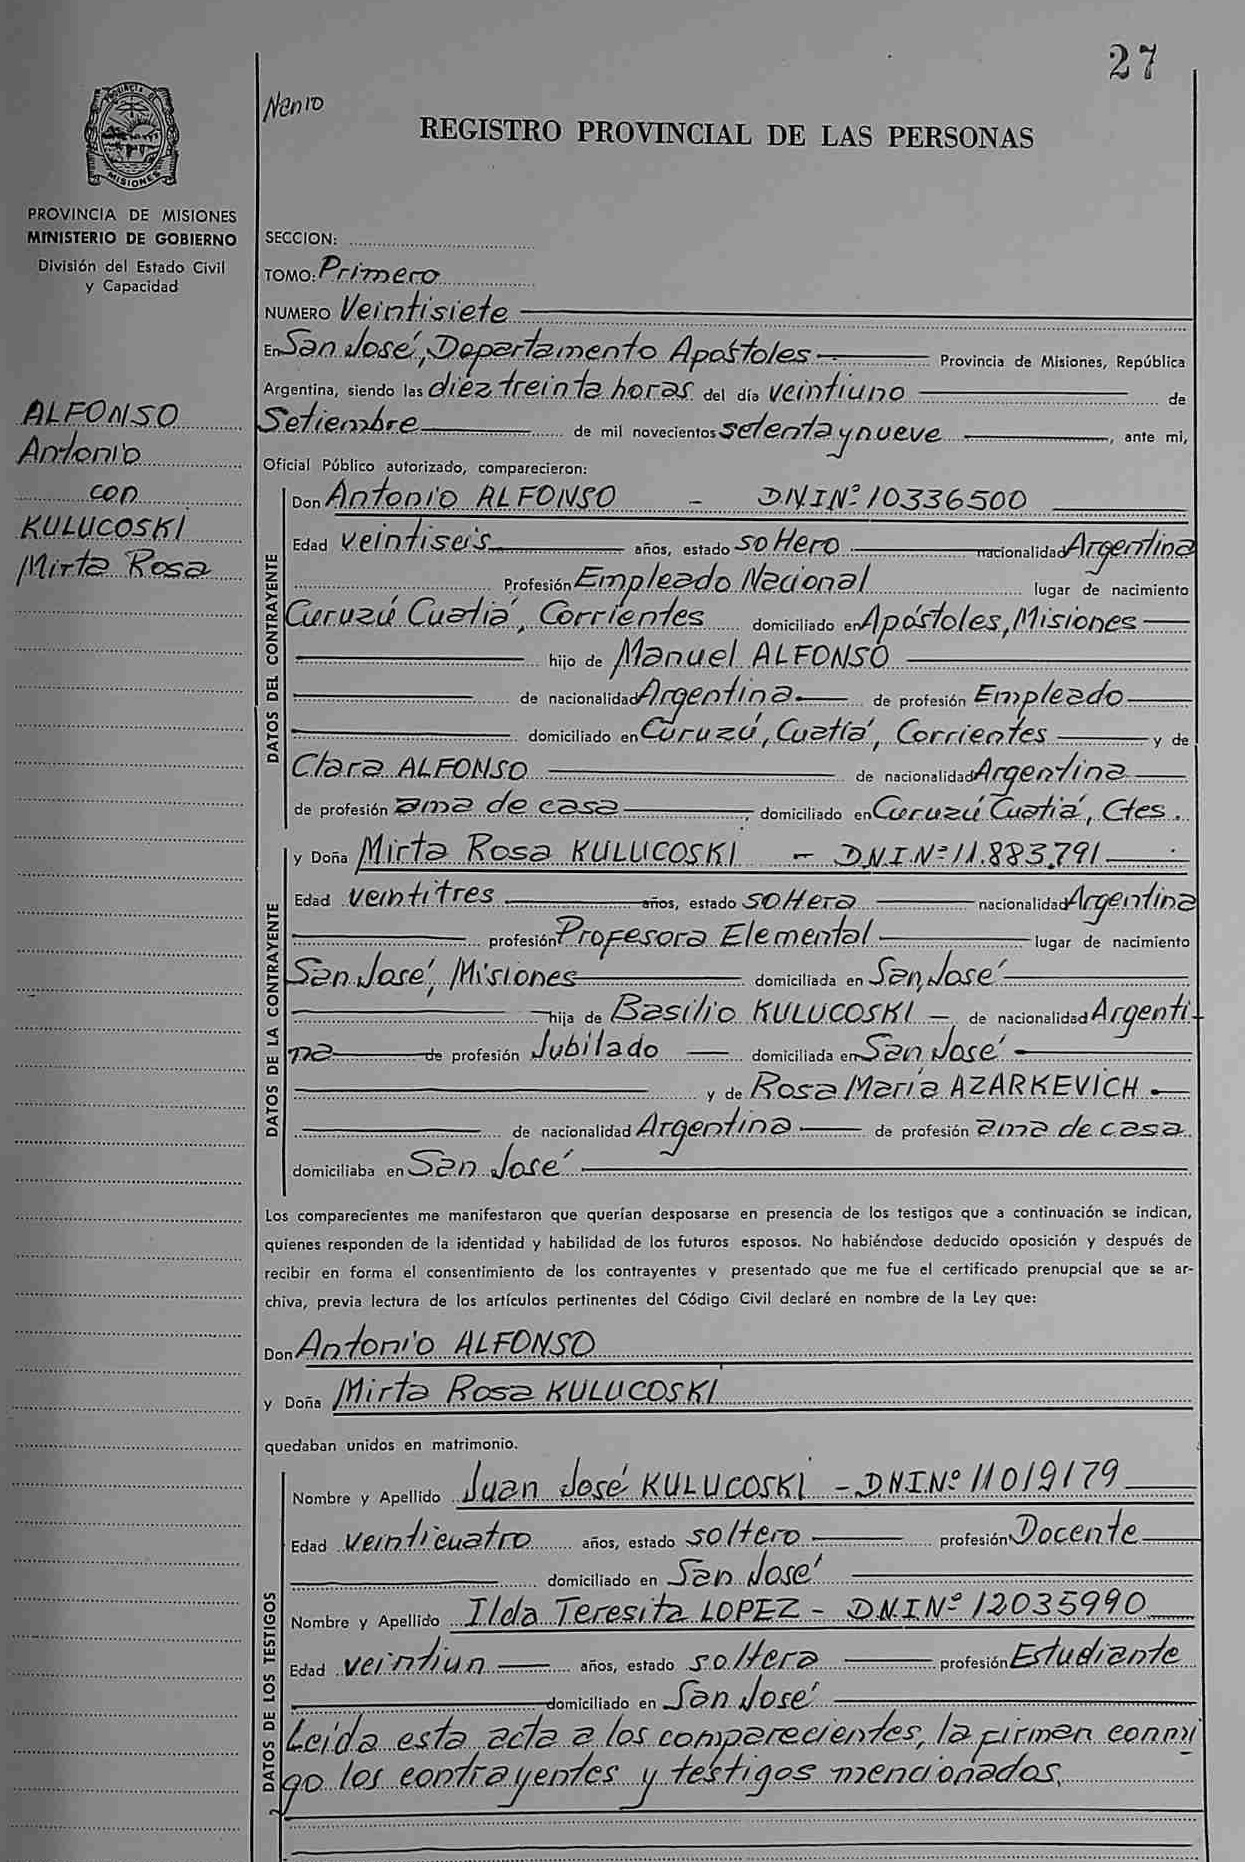 27
PROVINCIA DE
MISIONES
Nenio
REGISTRO PROVINCIAL DE LAS PERSONAS
PROVINCIA DE MISIONES
MINISTERIO DE GOBIERNO
División del Estado Civil
y Capacidad
ALFONSO
Antonio
con
KULUCOSKI
Mirta Rosa
SECCION:
TOMO: Primero
NUMERO Veintisiete
En San José, Departamento Apóstoles Provincia de Misiones, República
Argentina, siendo las diez treinta horas del día veintiuno de
Setiembre de mil novecientos setenta y nueve, ante mi,
Oficial Público autorizado, comparecieron:
DATOS DEL CONTRAYENTE
Don Antonio ALFONSO - D.N.I.Nº 10336500
Edad veintiseis años, estado soltero nacionalidad Argentina
Profesión Empleado Nacional lugar de nacimiento
Curuzú Cuatiá, Corrientes domiciliado en Apóstoles, Misiones
hijo de Manuel ALFONSO
de nacionalidad Argentina de profesión Empleado
domiciliado en Curuzú, Cuatiá, Corrientes y de
Clara ALFONSO de nacionalidad Argentina
de profesión ama de casa, domiciliado en Curuzú Cuatiá, Ctes.
DATOS DE LA CONTRAYENTE
y Doña Mirta Rosa KULUCOSKI - D.N.I.Nº 11.883.791
Edad veintitres años, estado soltera nacionalidad Argentina
profesión Profesora Elemental lugar de nacimiento
San José, Misiones domiciliada en San José
hija de Basilio KULUCOSKI - de nacionalidad Argenti-
na de profesión Jubilado domiciliada en San José
y de Rosa María AZARKEVICH
de nacionalidad Argentina de profesión ama de casa
domiciliaba en San José
Los comparecientes me manifestaron que querían desposarse en presencia de los testigos que a continuación se indican,
quienes responden de la identidad y habilidad de los futuros esposos. No habiéndose deducido oposición y después de
recibir en forma el consentimiento de los contrayentes y presentado que me fue el certificado prenupcial que se ar-
chiva, previa lectura de los artículos pertinentes del Código Civil declaré en nombre de la Ley que:
Don Antonio ALFONSO
y Doña Mirta Rosa KULUCOSKI
quedaban unidos en matrimonio.
DATOS DE LOS TESTIGOS
Nombre y Apellido Juan José KULUCOSKI - D.N.I.Nº 11019179
Edad veinticuatro años, estado soltero profesión Docente
domiciliado en San José
Nombre y Apellido Ilda Teresita LOPEZ - D.N.I.Nº 12035990
Edad veintiun años, estado soltera profesión Estudiante
domiciliado en San José
Leída esta acta a los comparecientes, la firman conmi
go los contrayentes y testigos mencionados.